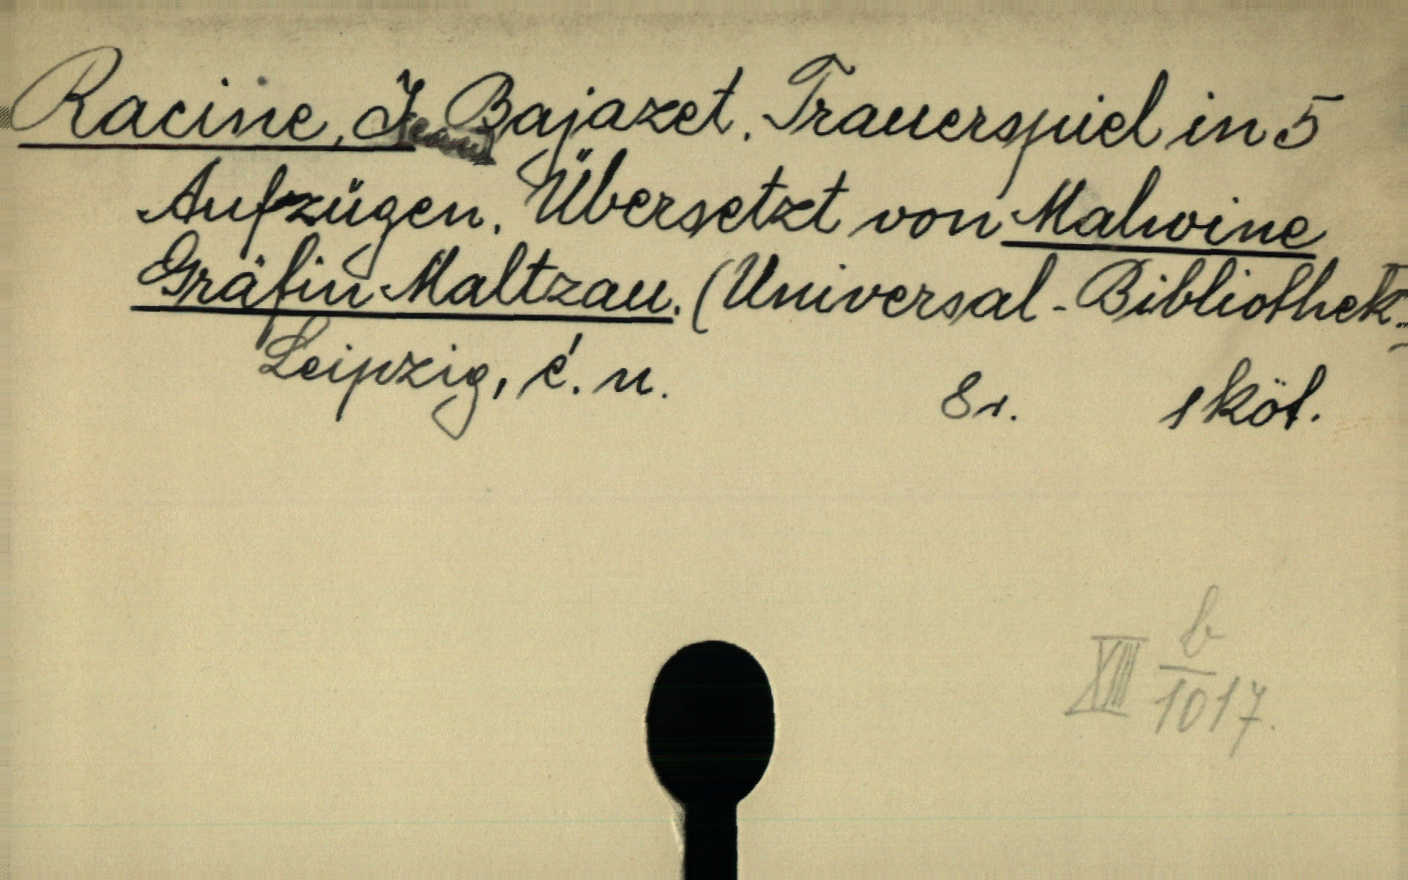 Racine, J[ean] Bajazet. Trauerspiel in 5
Aufzügen. Übersetzt von Malwine
Gräfin Maltzau. (Universal-Bibliothek.
Leipzig, é. n. 8r. 1 köt.
XIII b/1017.